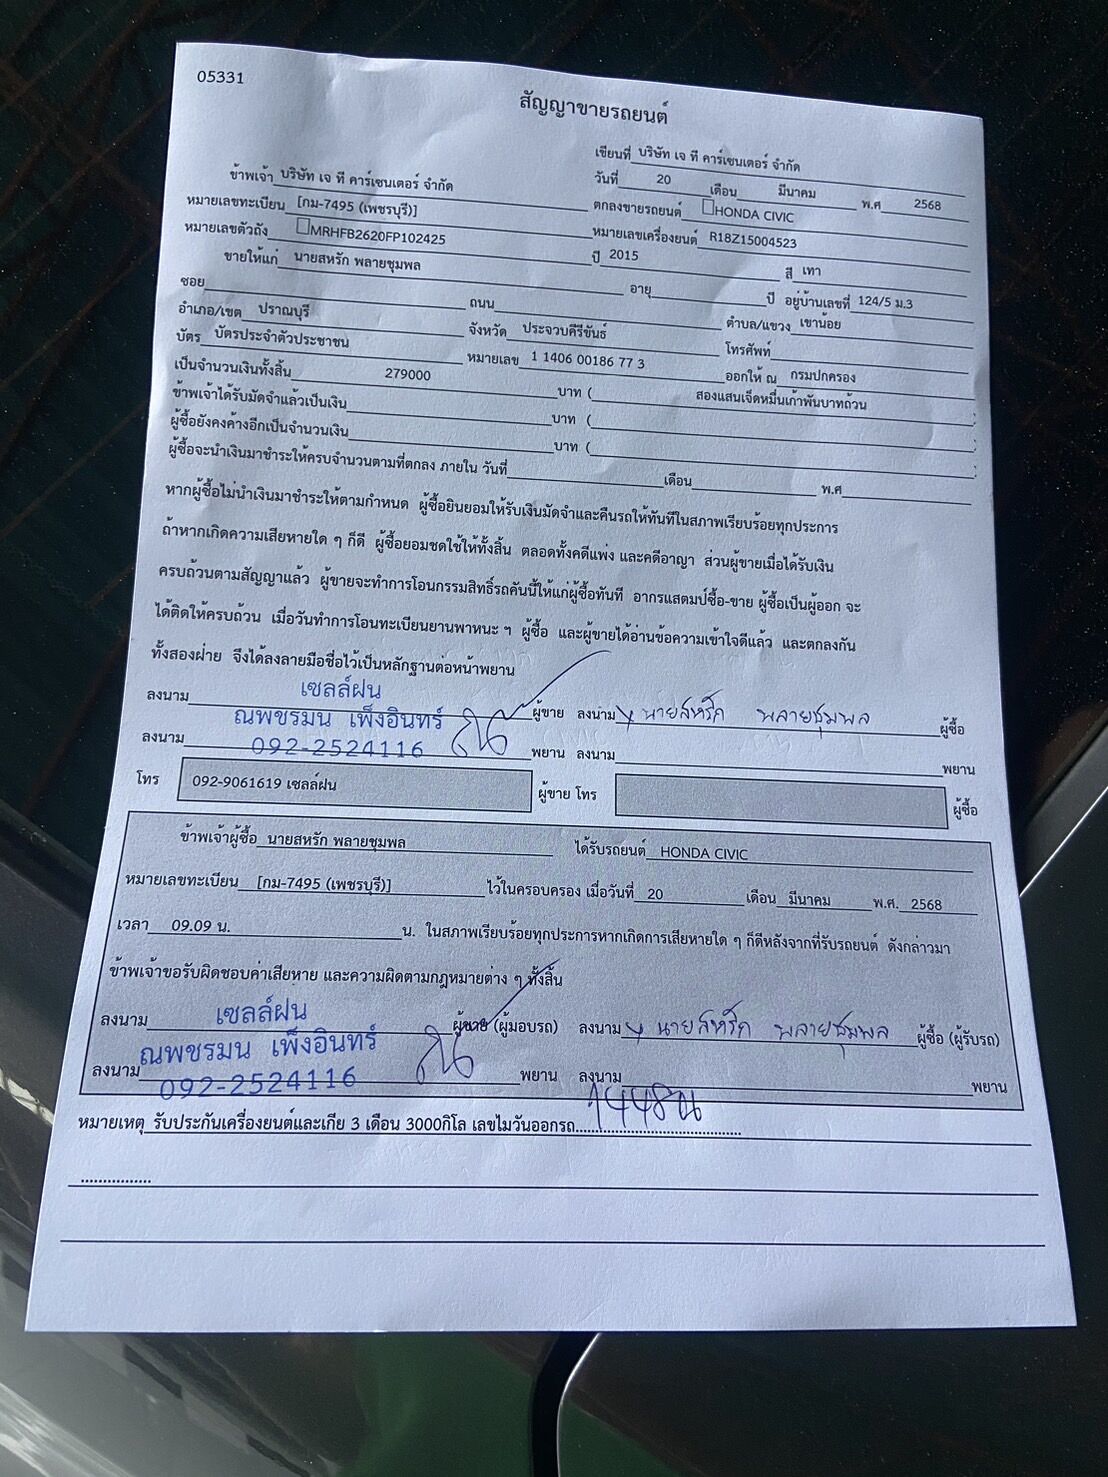 05331
สัญญาขายรถยนต์
เขียนที่ บริษัท เจ ที คาร์เซนเตอร์ จำกัด
ข้าพเจ้า บริษัท เจ ที คาร์เซนเตอร์ จำกัด วันที่ 20 เดือน มีนาคม พ.ศ 2568
หมายเลขทะเบียน [กม-7495 (เพชรบุรี)] ตกลงขายรถยนต์ HONDA CIVIC
หมายเลขตัวถัง MRHFB2620FP102425 หมายเลขเครื่องยนต์ R18Z15004523
ขายให้แก่ นายสหรัก พลายชุมพล ปี 2015 สี เทา
ซอย อายุ ปี อยู่บ้านเลขที่ 124/5 ม.3
อำเภอ/เขต ปราณบุรี ถนน ตำบล/แขวง เขาน้อย
บัตร บัตรประจำตัวประชาชน จังหวัด ประจวบคีรีขันธ์ โทรศัพท์
เป็นจำนวนเงินทั้งสิ้น 279000 หมายเลข 1 1406 00186 77 3 ออกให้ ณ กรมปกครอง
บาท ( สองแสนเจ็ดหมื่นเก้าพันบาทถ้วน
ข้าพเจ้าได้รับมัดจำแล้วเป็นเงิน บาท (
ผู้ซื้อยังคงค้างอีกเป็นจำนวนเงิน บาท (
ผู้ซื้อจะนำเงินมาชำระให้ครบจำนวนตามที่ตกลง ภายใน วันที่ เดือน พ.ศ
หากผู้ซื้อไม่นำเงินมาชำระให้ตามกำหนด ผู้ซื้อยินยอมให้รับเงินมัดจำและคืนรถให้ทันทีในสภาพเรียบร้อยทุกประการ
ถ้าหากเกิดความเสียหายใด ๆ ก็ดี ผู้ซื้อยอมชดใช้ให้ทั้งสิ้น ตลอดทั้งคดีแพ่ง และคดีอาญา ส่วนผู้ขายเมื่อได้รับเงิน
ครบถ้วนตามสัญญาแล้ว ผู้ขายจะทำการโอนกรรมสิทธิ์รถคันนี้ให้แก่ผู้ซื้อทันที อากรแสตมป์ซื้อ-ขาย ผู้ซื้อเป็นผู้ออก จะ
ได้ติดให้ครบถ้วน เมื่อวันทำการโอนทะเบียนยานพาหนะ ฯ ผู้ซื้อ และผู้ขายได้อ่านข้อความเข้าใจดีแล้ว และตกลงกัน
ทั้งสองฝ่าย จึงได้ลงลายมือชื่อไว้เป็นหลักฐานต่อหน้าพยาน
ลงนาม เซลล์ฝน ผู้ขาย ลงนาม นายสหรัก พลายชุมพล ผู้ซื้อ
ณพชรมน เพ็งอินทร์
ลงนาม 092-2524116 พยาน ลงนาม พยาน
โทร 092-9061619 เซลล์ฝน ผู้ขาย โทร ผู้ซื้อ
ข้าพเจ้าผู้ซื้อ นายสหรัก พลายชุมพล ได้รับรถยนต์ HONDA CIVIC
หมายเลขทะเบียน [กม-7495 (เพชรบุรี)] ไว้ในครอบครอง เมื่อวันที่ 20 เดือน มีนาคม พ.ศ. 2568
เวลา 09.09 น. น. ในสภาพเรียบร้อยทุกประการหากเกิดการเสียหายใด ๆ ก็ดีหลังจากที่รับรถยนต์ ดังกล่าวมา
ข้าพเจ้าขอรับผิดชอบค่าเสียหาย และความผิดตามกฎหมายต่าง ๆ ทั้งสิ้น
ลงนาม เซลล์ฝน ผู้ขาย (ผู้มอบรถ) ลงนาม นายสหรัก พลายชุมพล ผู้ซื้อ (ผู้รับรถ)
ณพชรมน เพ็งอินทร์
ลงนาม 092-2524116 พยาน ลงนาม พยาน
หมายเหตุ รับประกันเครื่องยนต์และเกีย 3 เดือน 3000กิโล เลขไมวันออกรถ